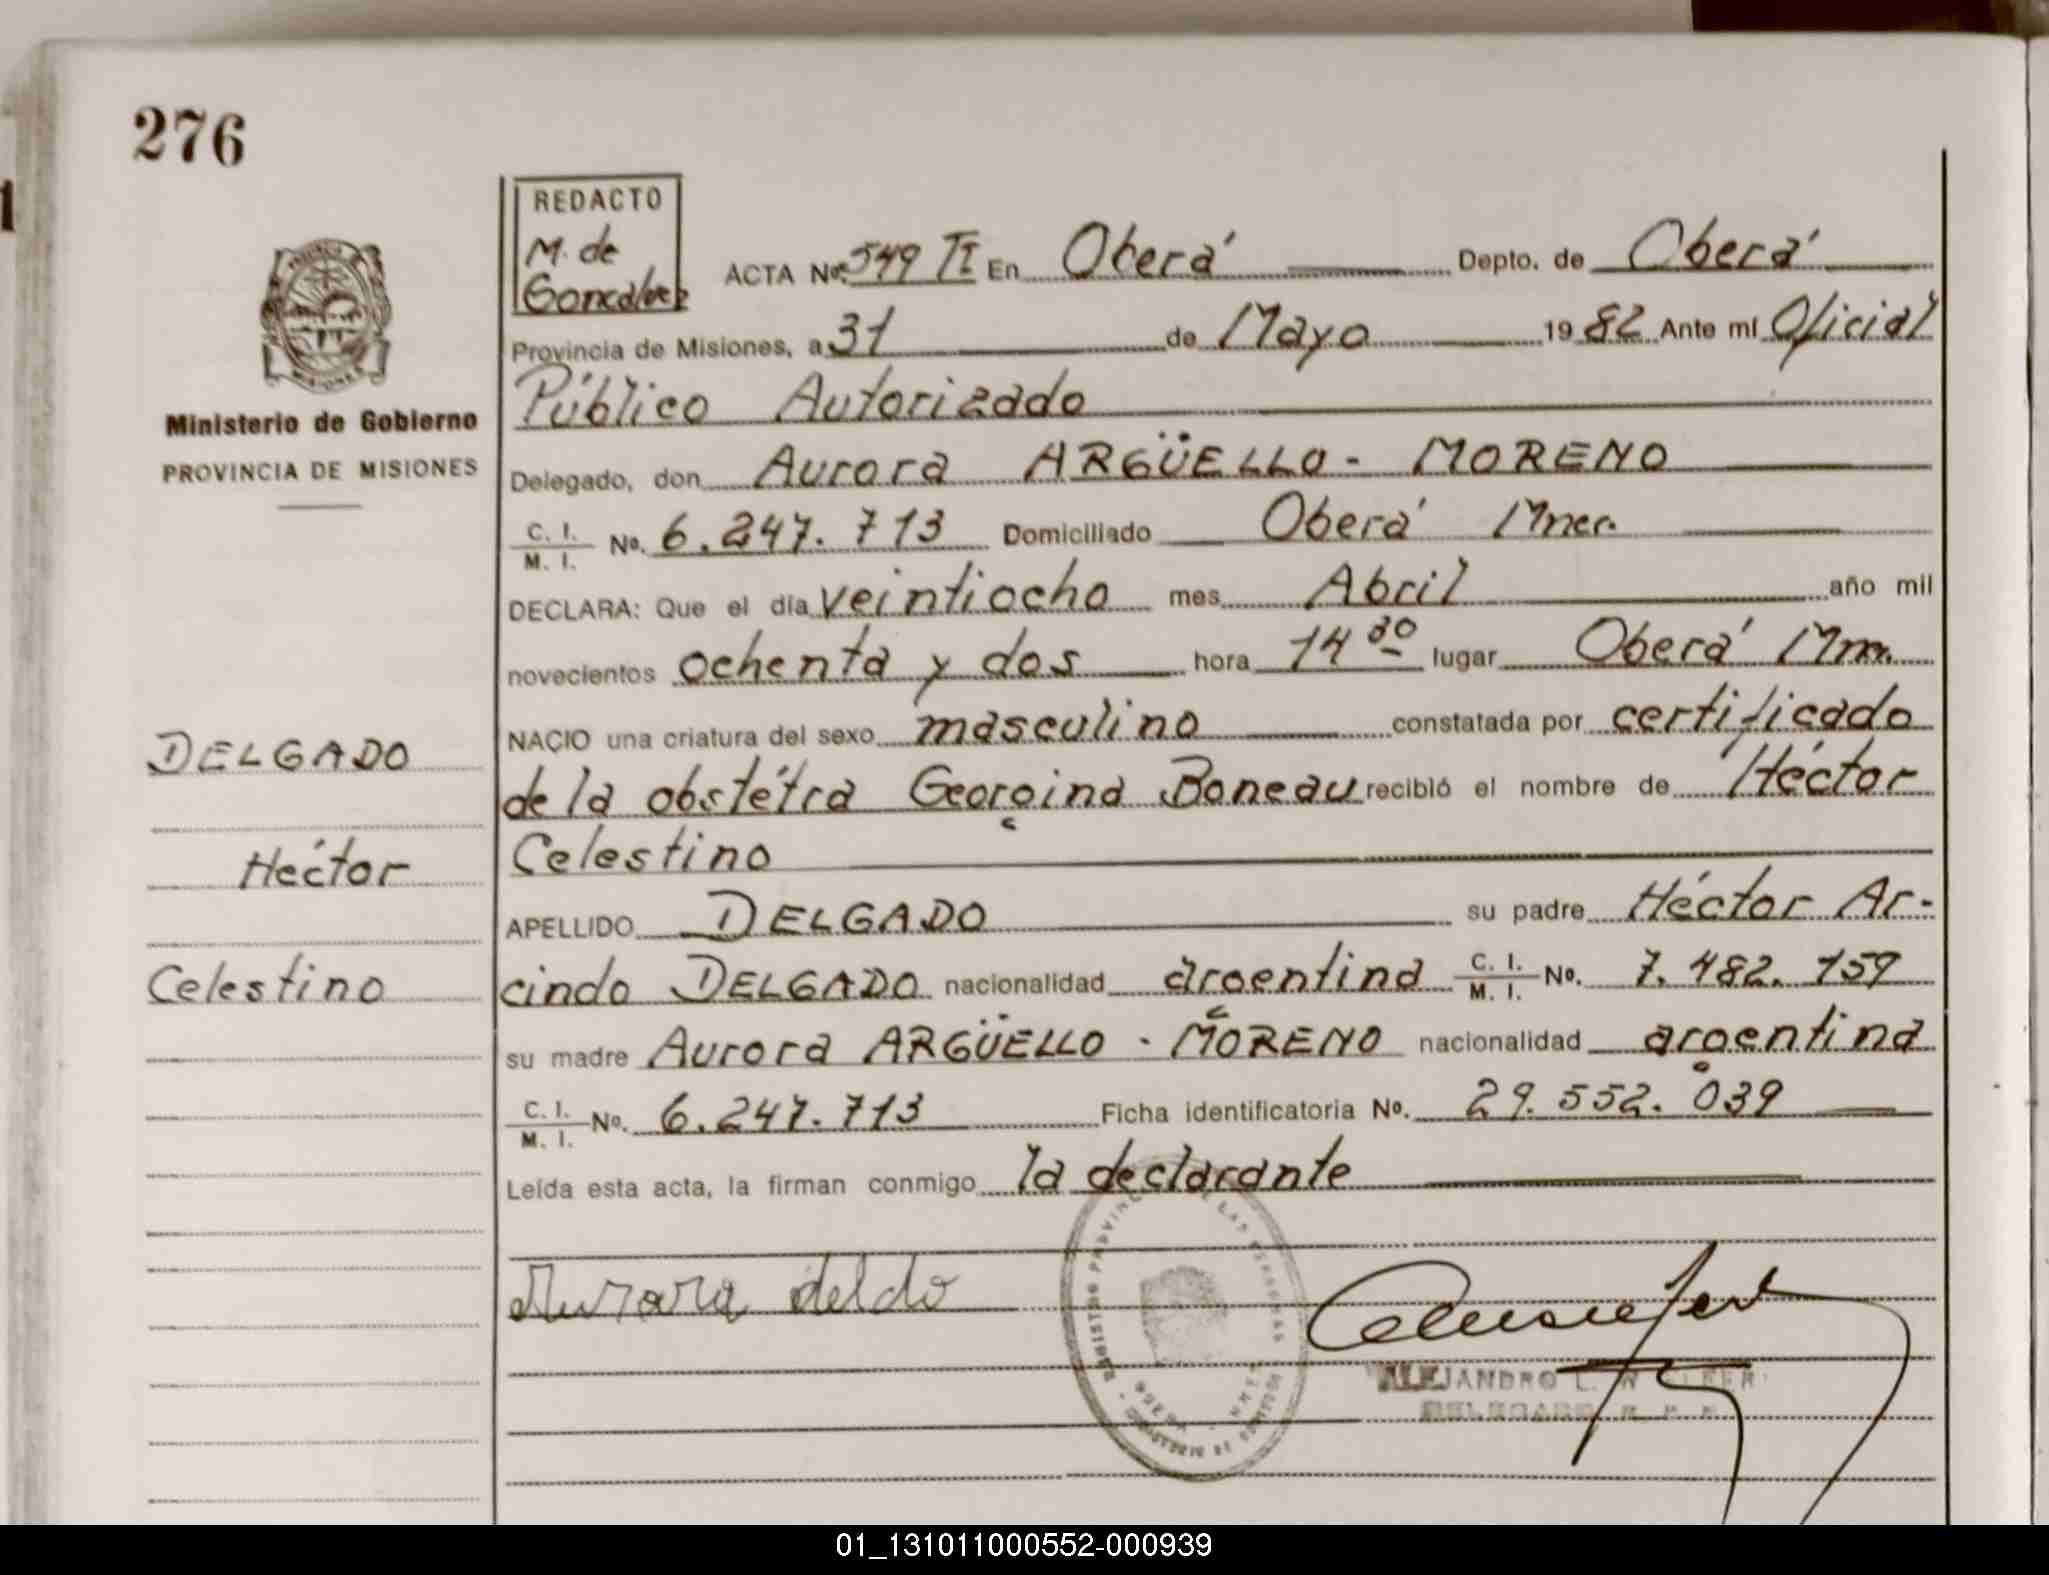 276
REDACTO
M. de
Goncalvez
ACTA Nº 549 TI En Oberá Depto. de Oberá
Provincia de Misiones, a 31 de Mayo 1982 Ante mí Oficial
Público Autorizado
Delegado, don Aurora ARGÜELLO - MORENO
C. I. / M. I. Nº. 6.247.713 Domiciliado Oberá Mnes.
DECLARA: Que el día veintiocho mes Abril año mil
novecientos ochenta y dos hora 14 30 lugar Oberá Mnes.
NACIO una criatura del sexo masculino constatada por certificado
de la obstétra Georgina Boneau recibló el nombre de Héctor
Celestino
APELLIDO DELGADO su padre Héctor Ar-
cindo DELGADO nacionalidad argentina C. I. / M. I. Nº. 7.482.159
su madre Aurora ARGÜELLO - MORENO nacionalidad argentina
C. I. / M. I. Nº. 6.247.713 Ficha identificatoria Nº. 29.552.039
Leída esta acta, la firman conmigo la declarante
Aurora deldo
ALEJANDRO L.
DELEGADO R. P. P.
PROVINCIA
MISIONES
Ministerio de Gobierno
PROVINCIA DE MISIONES
DELGADO
Héctor
Celestino
REGISTRO PROVINCIAL DE LAS PERSONAS
OBERA
01_131011000552-000939